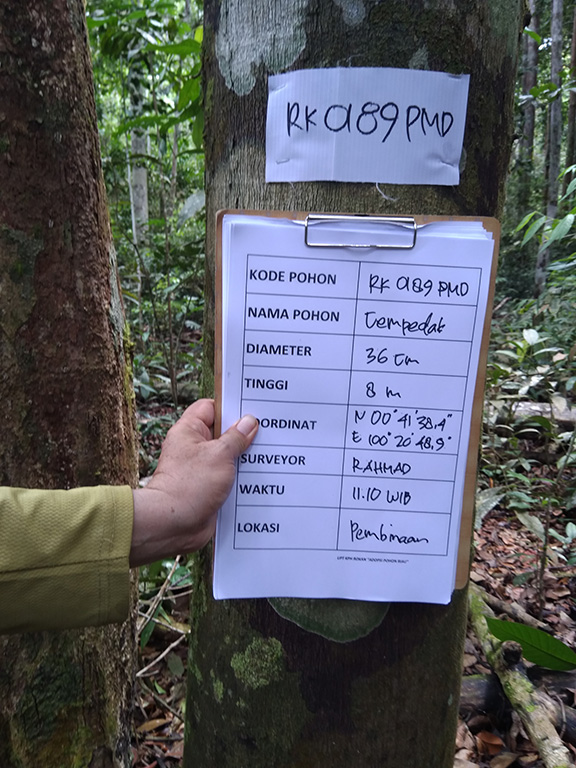 RK A89 PMD
KODE POHON RK A89 PMD
NAMA POHON Cempedak
DIAMETER 36 cm
TINGGI 8 m
OORDINAT N 00° 41' 38,4"
E 100° 20' 48,9"
SURVEYOR RAHMAD
WAKTU 11.10 WIB
LOKASI Pembinaan
"ADOPSI POHON RIAU"